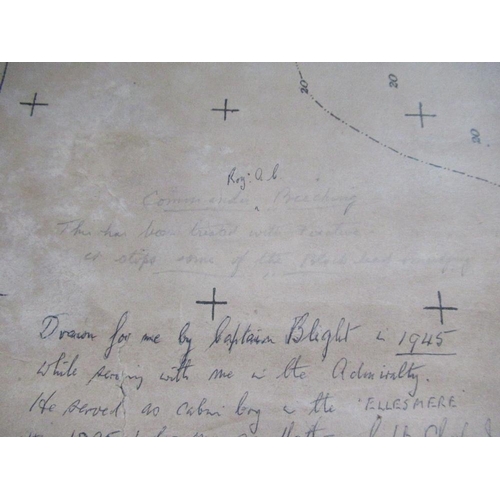 20
20
20
Commander Beeching
This has been treated with
as stops some of the black lead smudging
Drawn for me by Captain Blight in 1945
while serving with me in the Admiralty.
He served as cabin boy in the "ELLESMERE"